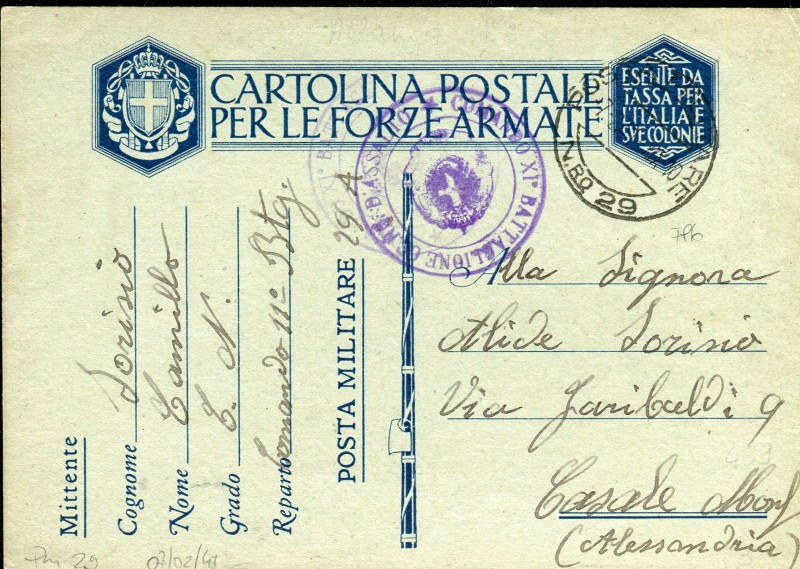 CARTOLINA POSTALE
PER LE FORZE ARMATE
ESENTE DA
TASSA PER
L'ITALIA E
SVE COLONIE
COMANDO XI° BATTAGLIONE CC. NN. D'ASSALTO
POSTA MILITARE
N.RO 29
Mittente
Cognome Torisio
Nome Camillo
Grado C. N.
Reparto Comando 11° Btg.
POSTA MILITARE 29 A
Alla Signora
Alide Torisio
Via Garibaldi 9
Casale Monf
(Alessandria)
Pm 29
07/02/41